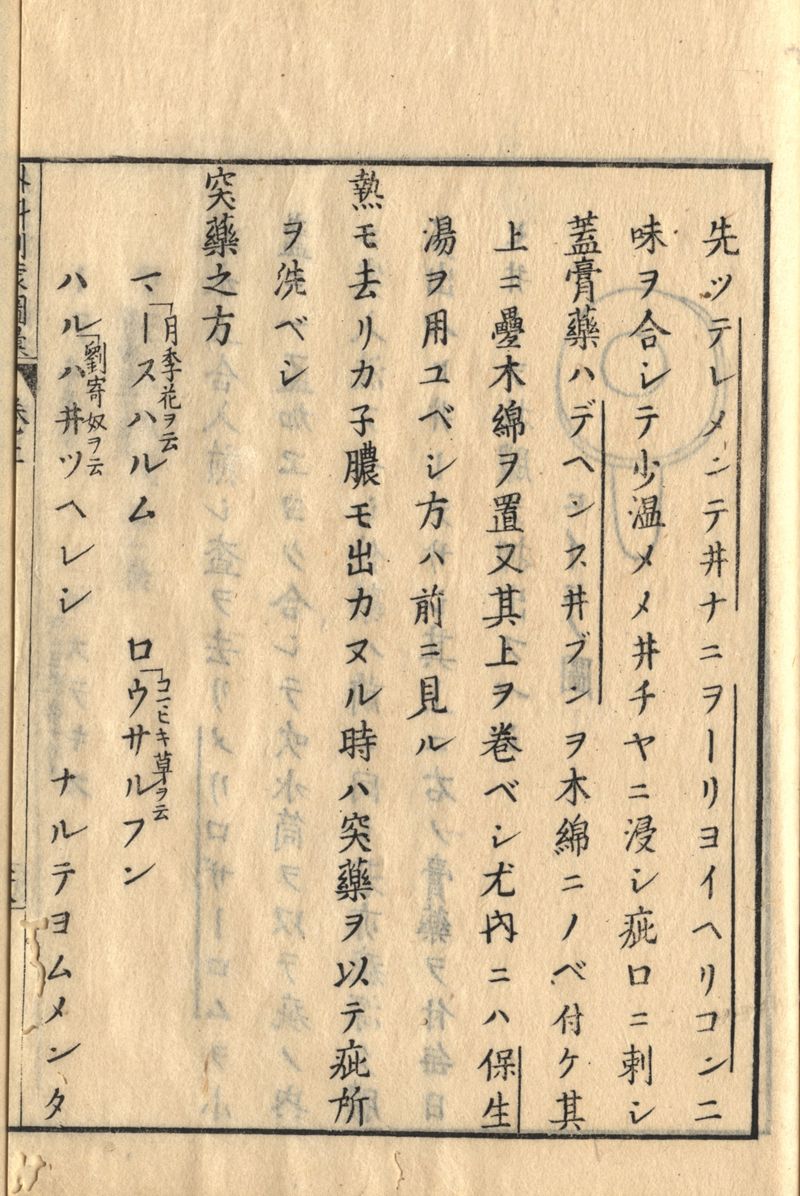 先ツテレメンテ井ナニヲーリヨイヘリコンニ
味ヲ合シテ少温メメ井チヤニ浸シ疵口ニ刺シ
蓋膏藥ハデヘンス井ブンヲ木綿ニノベ付ケ其
上ニ疊木綿ヲ置又其上ヲ巻ベシ尤内ニハ保生
湯ヲ用ユベシ方ハ前ニ見ル
熱モ去リカ子膿モ出カヌル時ハ突藥ヲ以テ疵所
ヲ洗ベシ
突藥之方
マースハルム
月季花ヲ云
ロウサルフン
コマヒキ草ヲ云
ハルハ井ツヘレシ
劉寄奴ヲ云
ナルテヨムメンタ